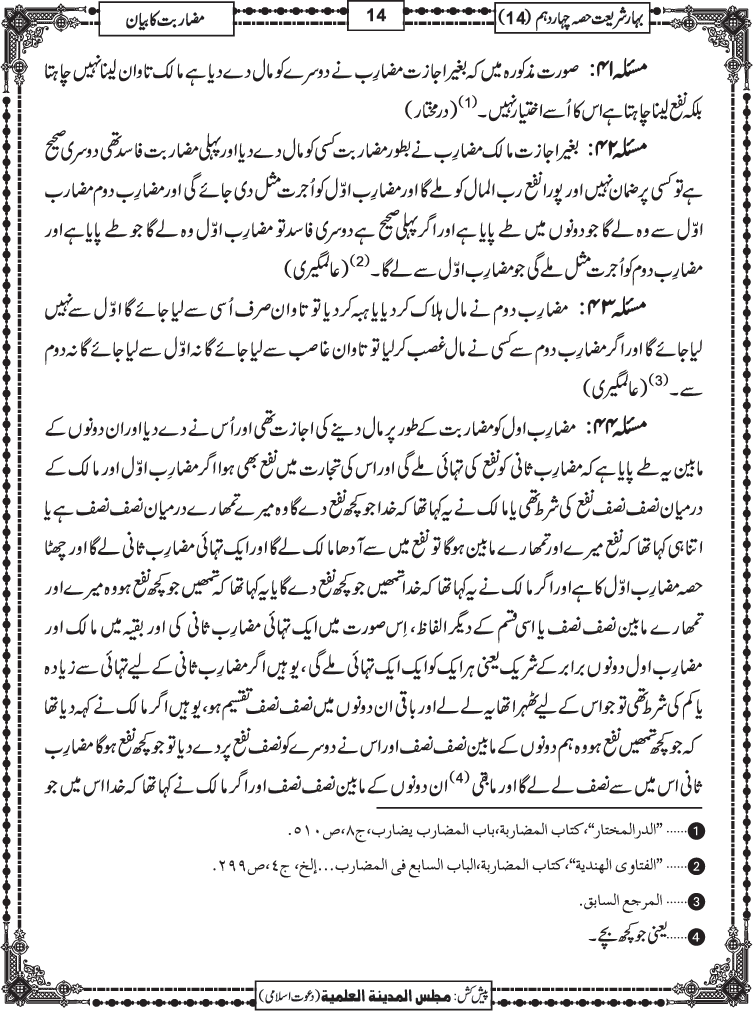 بہارِ شریعت حصہ چہاردہم (14)
14
مضاربت کا بیان
مسئلہ ۴۱: صورت مذکورہ میں کہ بغیر اجازت مضارِب نے دوسرے کو مال دے دیا ہے مالک تاوان لینا نہیں چاہتا
بلکہ نفع لینا چاہتا ہے اس کا اُسے اختیار نہیں۔(1) (درمختار)
مسئلہ ۴۲: بغیر اجازت مالک مضارِب نے بطور مضاربت کسی کو مال دے دیا اور پہلی مضاربت فاسد تھی دوسری صحیح
ہے تو کسی پر ضمان نہیں اور پورا نفع رب المال کو ملے گا اور مضارِب اوّل کو اُجرت مثل دی جائے گی اور مضارِب دوم مضارب
اوّل سے وہ لے گا جو دونوں میں طے پایا ہے اور اگر پہلی صحیح ہے دوسری فاسد تو مضارِب اوّل وہ لے گا جو طے پایا ہے اور
مضارِب دوم کو اُجرت مثل ملے گی جو مضارِب اوّل سے لے گا۔(2) (عالمگیری)
مسئلہ ۴۳: مضارِب دوم نے مال ہلاک کر دیا یا ہبہ کر دیا تو تاوان صرف اُسی سے لیا جائے گا اوّل سے نہیں
لیا جائے گا اور اگر مضارِب دوم سے کسی نے مال غصب کر لیا تو تاوان غاصب سے لیا جائے گا نہ اوّل سے لیا جائے گا نہ دوم
سے۔(3) (عالمگیری)
مسئلہ ۴۴: مضارِب اول کو مضاربت کے طور پر مال دینے کی اجازت تھی اور اُس نے دے دیا اور ان دونوں کے
مابین یہ طے پایا ہے کہ مضارِب ثانی کو نفع کی تہائی ملے گی اور اس کی تجارت میں نفع بھی ہوا اگر مضارِب اوّل اور مالک کے
درمیان نصف نصف نفع کی شرط تھی یا مالک نے یہ کہا تھا کہ خدا جو کچھ نفع دے گا وہ میرے تمھارے درمیان نصف نصف ہے یا
اتنا ہی کہا تھا کہ نفع میرے اور تمھارے مابین ہوگا تو نفع میں سے آدھا مالک لے گا اور ایک تہائی مضارِب ثانی لے گا اور چھٹا
حصہ مضارِب اوّل کا ہے اور اگر مالک نے یہ کہا تھا کہ خدا تمھیں جو کچھ نفع دے گا یا یہ کہا تھا کہ تمھیں جو کچھ نفع ہو وہ میرے اور
تمھارے مابین نصف نصف یا اسی قسم کے دیگر الفاظ، اِس صورت میں ایک تہائی مضارِب ثانی کی اور بقیہ میں مالک اور
مضارِب اول دونوں برابر کے شریک یعنی ہر ایک کو ایک ایک تہائی ملے گی، یوہیں اگر مضارِب ثانی کے لیے تہائی سے زیادہ
یا کم کی شرط تھی تو جو اس کے لیے ٹھہرا تھا یہ لے لے اور باقی ان دونوں میں نصف نصف تقسیم ہو، یوہیں اگر مالک نے کہہ دیا تھا
کہ جو کچھ تمھیں نفع ہو وہ ہم دونوں کے مابین نصف نصف اور اس نے دوسرے کو نصف نفع پر دے دیا تو جو کچھ نفع ہوگا مضارِب
ثانی اس میں سے نصف لے لے گا اور مابقی (4) ان دونوں کے مابین نصف نصف اور اگر مالک نے کہا تھا کہ خدا اس میں جو
1 ...... "الدرالمختار"، کتاب المضاربة، باب المضارب یضارب، ج۸، ص۵۱۰.
2 ...... "الفتاوی الهندیة"، کتاب المضاربة، الباب السابع فی المضارب...إلخ، ج٤، ص۲۹۹.
3 ...... المرجع السابق.
4 ...... یعنی جو کچھ بچے۔
پیش کش: مجلس المدینة العلمیة (دعوتِ اسلامی)